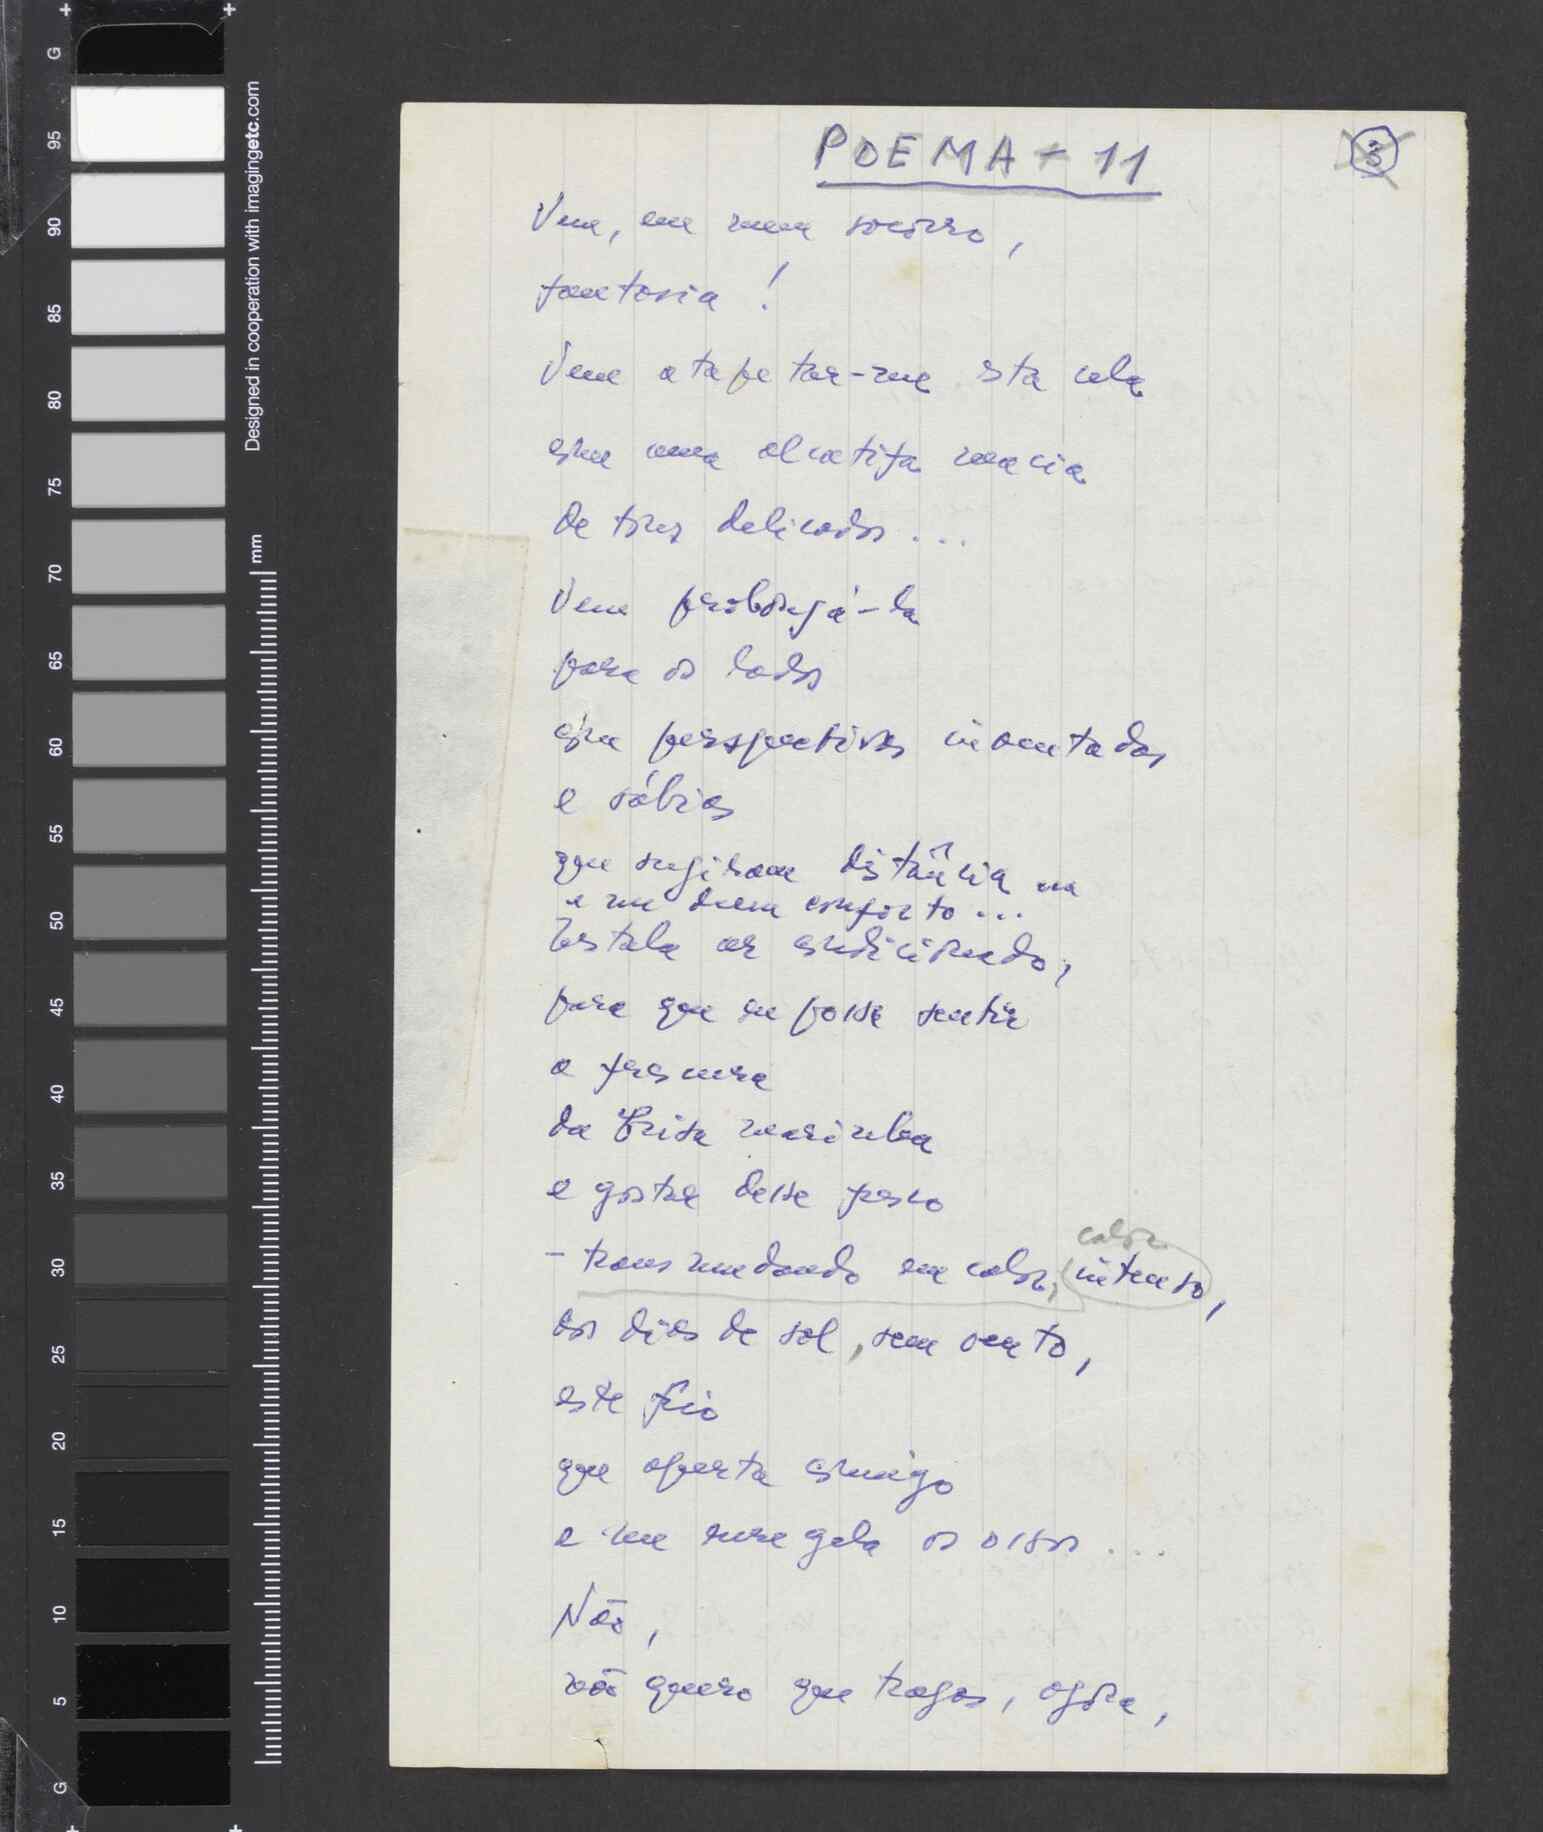 POEMA - 11
3
Vem, em meu socorro,
fantasia!
Vem atapetar-me esta cela
com uma alcatifa macia
de tons delicados...
Vem prolongá-la
para os lados
com perspectivas inventadas
e sábias
que sugiram distância
e me deem conforto...
Instala ar condicionado,
para que eu possa sentir
a frescura
da brisa marinha
e gostar desse fresco
- transmudando em calor,
calor
intenso,
dos dias de sol, sem vento,
este frio
que aperta comigo
e me enregela os ossos...
Não,
não quero que tragas, agora,
G
95
90
85
80
75
70
65
60
55
50
45
40
35
30
25
20
15
10
5
G
Designed in cooperation with imagingetc.com
mm